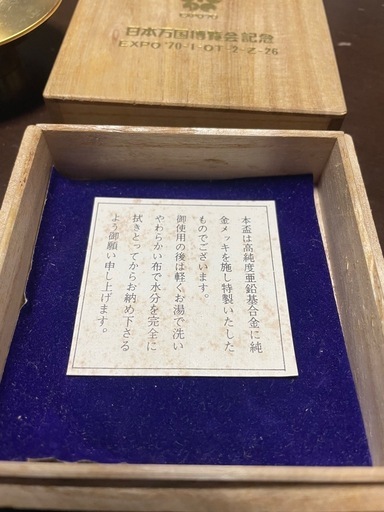 EXPO'70
日本万国博覧会記念
EXPO '70-I-OT-2-Z-26
本盃は高純度亜鉛基合金に純
金メッキを施し特製いたした
ものでございます。
御使用の後は軽くお湯で洗い
やわらかい布で水分を完全に
拭きとってからお納め下さる
よう御願い申し上げます。